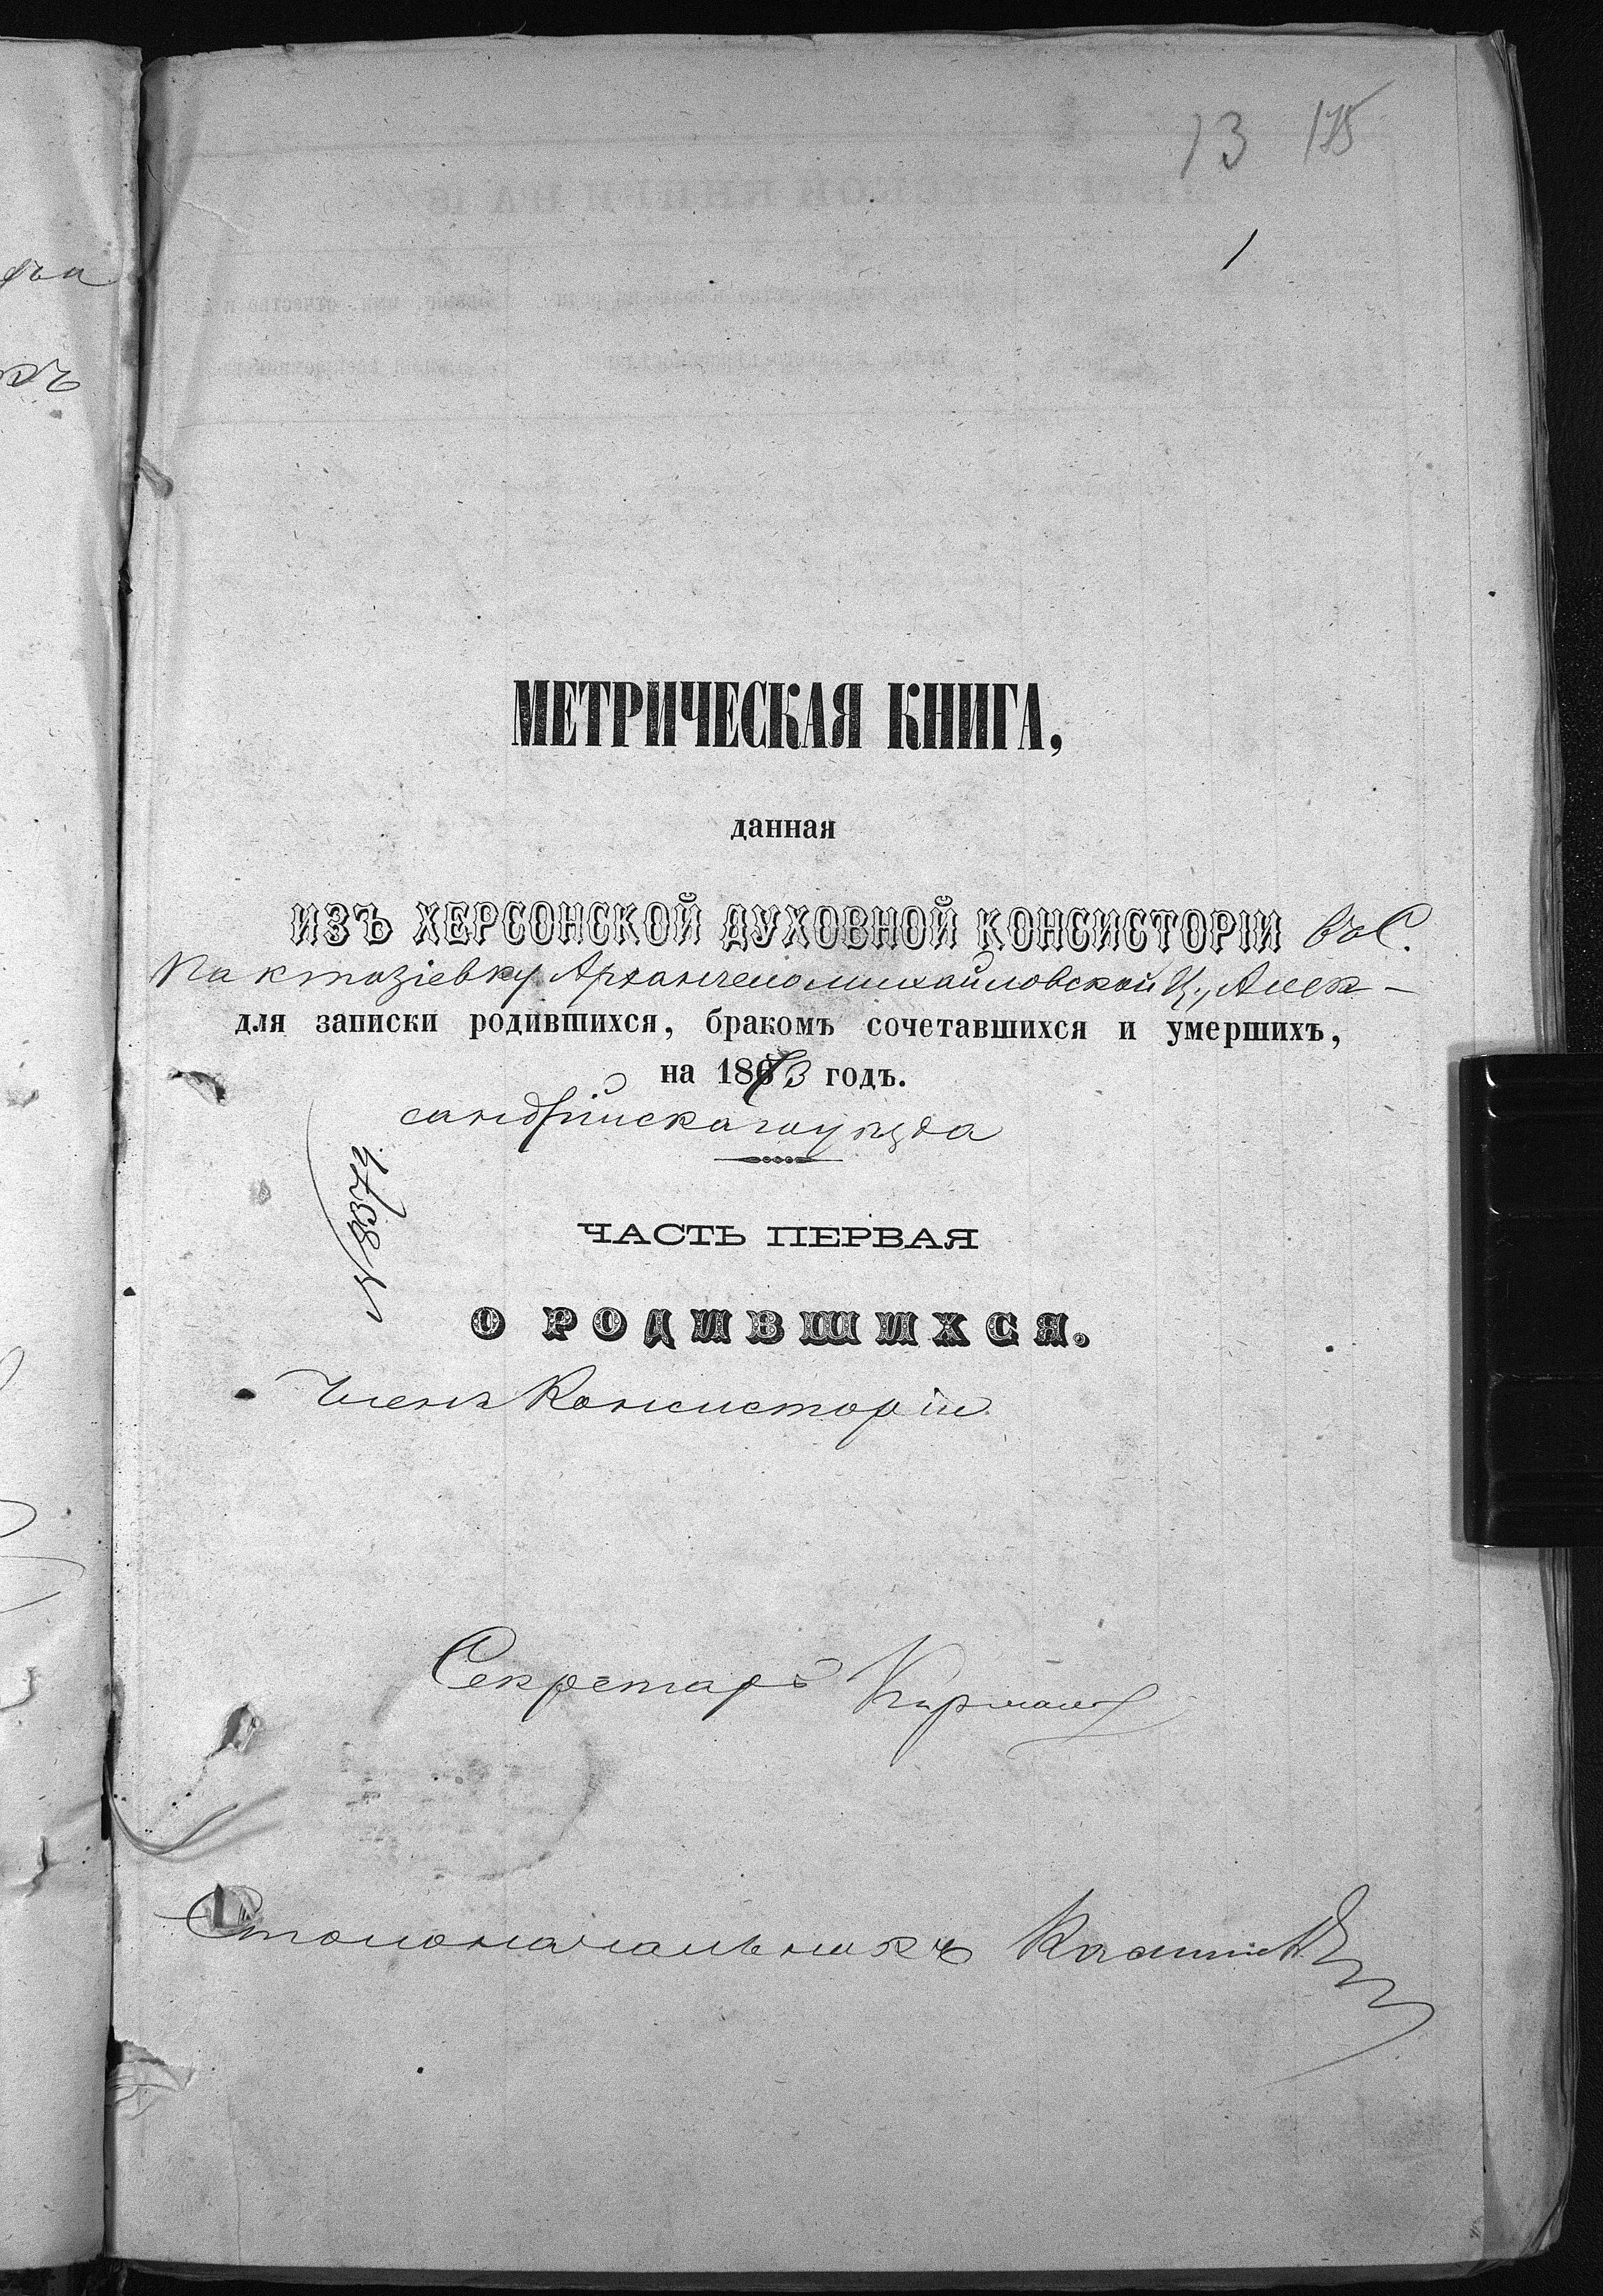 13 175
1
МЕТРИЧЕСКАЯ КНИГА,
данная
ИЗЪ ХЕРСОНСКОЙ ДУХОВНОЙ КОНСИСТОРІИ въ С.
Архангеломихайловской Ц., Алек-
для записки родившихся, бракомъ сочетавшихся и умершихъ,
на 1873 годъ.
сандрійскаго уѣзда
№ 8374.
ЧАСТЬ ПЕРВАЯ
О РОДИВШИХСЯ.
Членъ Консисторіи
Секретарь
Столоначальникъ